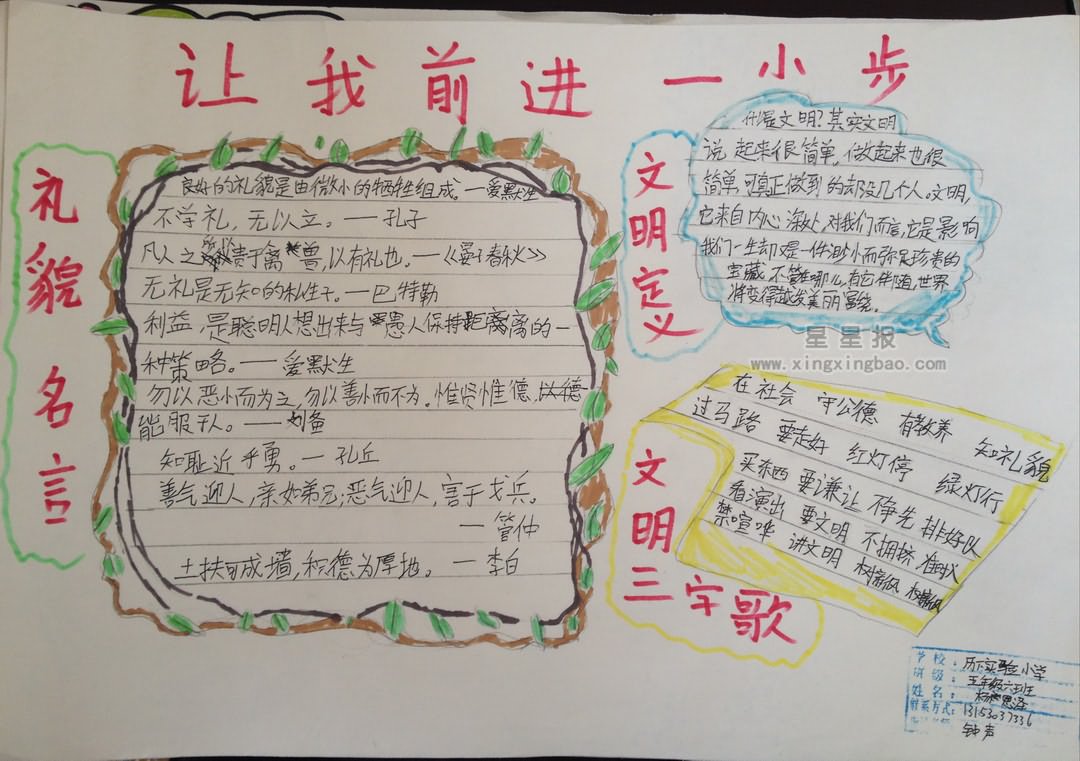 让我前进一小步
礼貌名言
良好的礼貌是由微小的牺牲组成。—爱默生
不学礼，无以立。——孔子
凡人之所以贵于禽兽，以有礼也。—《晏子春秋》
无礼是无知的私生子。——巴特勒
利益，是聪明人想出来与愚人保持距离的一
种策略。——爱默生
勿以恶小而为之，勿以善小而不为。惟贤惟德，以德
能服人。——刘备
知耻近乎勇。—孔丘
善气迎人，亲如弟兄；恶气迎人，害于戈兵。
—管仲
土扶可成墙，积德为厚地。—李白
文明定义
什是文明？其实文明
说起来很简单，做起来也很
简单，可真正做到的却没几个人。文明，
它来自内心深处，对我们而言，它是影响
我们一生却又是一件渺小而弥足珍贵的
宝藏，不管哪儿，有它伴随，世界
将变得越发美丽富饶。
星星报
www.xingxingbao.com
文明三字歌
在社会 守公德 有教养 知礼貌
过马路 要走好 红灯停 绿灯行
买东西 要谦让 不争先 排好队
看演出 要文明 不拥挤
禁喧哗 讲文明 树新风
学校：历下实验小学
班级：五年级六班
姓名：
联系方式：13153037336
钟声